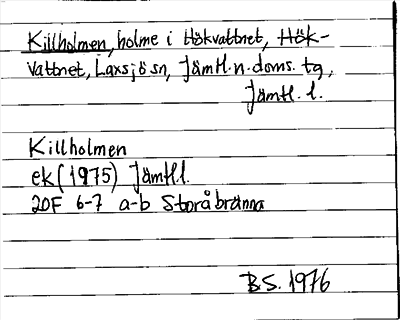 Killholmen, holme i Hökvattnet, Hök-
vattnet, Laxsjö sn, Jämtl. n. doms. tg,
Jämtl. l.
Killholmen
ek (1975) Jämtl. l.
20F 6-7 a-b Storåbränna
B.S. 1976